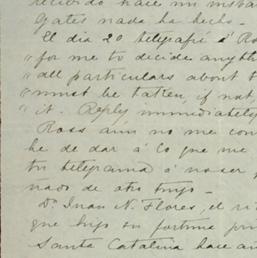 recibido hace mi insta
gates nada ha hecho.
El dia 20 telegrafié á Ro
" for me to decide anyth
" all particulars about t
" must be taken, if not,
" it. Reply immediately
Ross aun no me con
he de dar á Co que me
tu telegrama á no ser
nado de otro tuyo —
Dn. Juan N. Flores, el ri
que hizo su fortuna prin
Santa Catalina hace an